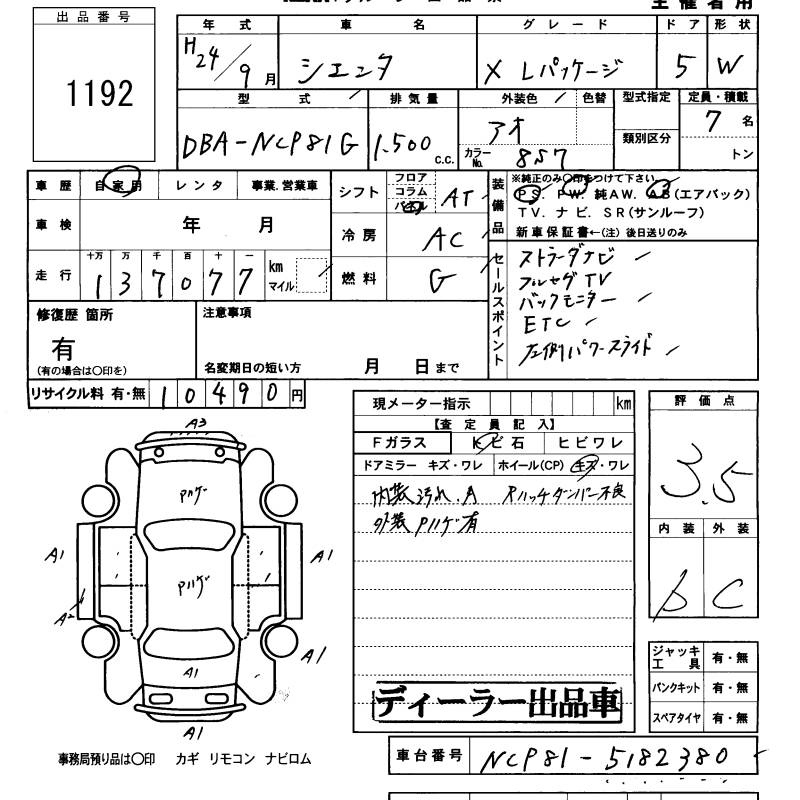 主催者用
出品番号
1192
年式 車名 グレード ドア 形状
H24/9月 シエンタ X Lパッケージ 5 W
型式 排気量 外装色 色替 型式指定 定員・積載
DBA-NCP81G 1.500 c.c. アオ 類別区分 7名
カラーNo. 8S7 トン
車歴 自家用 レンタ 事業.営業車
シフト フロア コラム パネル AT
装備品 ※純正のみ○印をつけて下さい
PS. PW. 純AW. AB(エアバック)
TV. ナビ. SR(サンルーフ)
新車保証書←(注)後日送りのみ
車検 年 月
冷房 AC
走行 十万 万 千 百 十 一
137077 km マイル
燃料 G
セールスポイント
ストラーダナビ
フルセグTV
バックモニター
ETC
左側パワースライド
修復歴 箇所
有
(有の場合は○印を)
注意事項
名変期日の短い方 月 日まで
リサイクル料 有・無 10490円
現メーター指示 km
【査定員記入】
Fガラス トビ石 ヒビワレ
ドアミラー キズ・ワレ ホイール(CP) キズ・ワレ
内装 汚れ.A Rハッチダンパー不良
外装 Pハゲ有
ディーラー出品車
評価点
3.5
内装 外装
B C
A3
Pハゲ
A1 A1
Pハゲ
A2
A1
A1
A1
ジャッキ工具 有・無
パンクキット 有・無
スペアタイヤ 有・無
事務局預り品は○印 カギ リモコン ナビロム
車台番号 NCP81-5182380